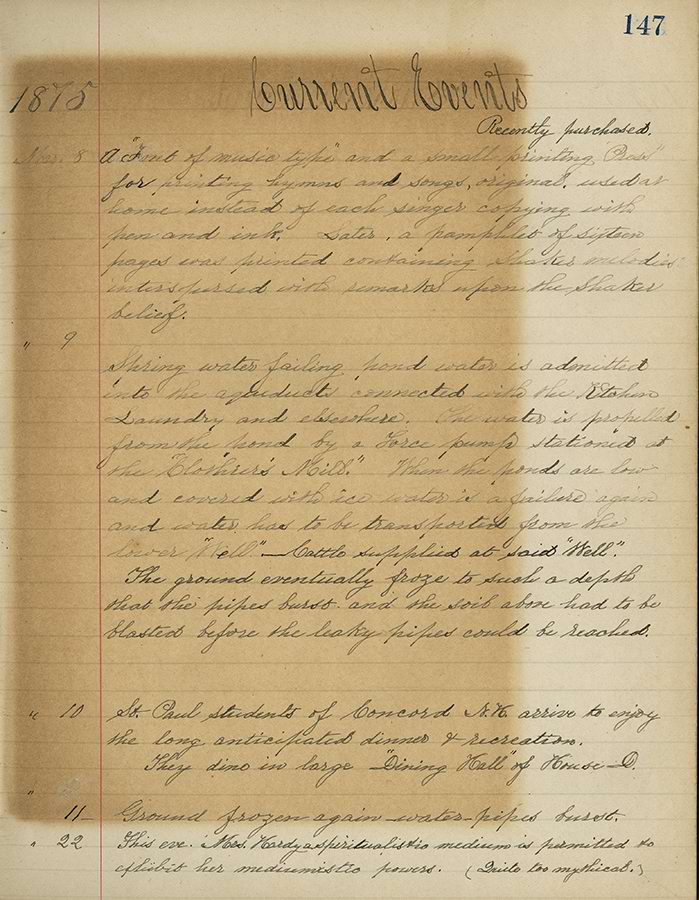 147
1875 Current Events
Recently purchased.
Nov. 8 A "Font of music type" and a small printing "Press"
for printing hymns and songs, original, used at
home instead of each singer copying with
pen and ink. Later, a pamphlet of sixteen
pages was printed containing Shaker melodies
interspersed with remarks upon the Shaker
belief.
" 9
Spring water failing, pond water is admitted
into the aqueducts connected with the Kitchen
Laundry and elsewhere. The water is propelled
from the pond by a Force pump stationed at
the "Clothier's Mill." When the ponds are low
and covered with ice water is a failure again
and water has to be transported from the
lower "Well" — Cattle supplied at said "Well".
The ground eventually froze to such a depth
that the pipes burst and the soil above had to be
blasted before the leaky pipes could be reached.
" 10 St. Paul students of Concord N.H. arrive to enjoy
the long anticipated dinner & recreation.
They dine in large "Dining Hall" of House D.
" 11 Ground frozen again - water-pipes burst.
" 22 This eve. Mrs. Hardy a spiritualistic medium is permitted to
exhibit her mediumistic powers. (Quite too mythical.)